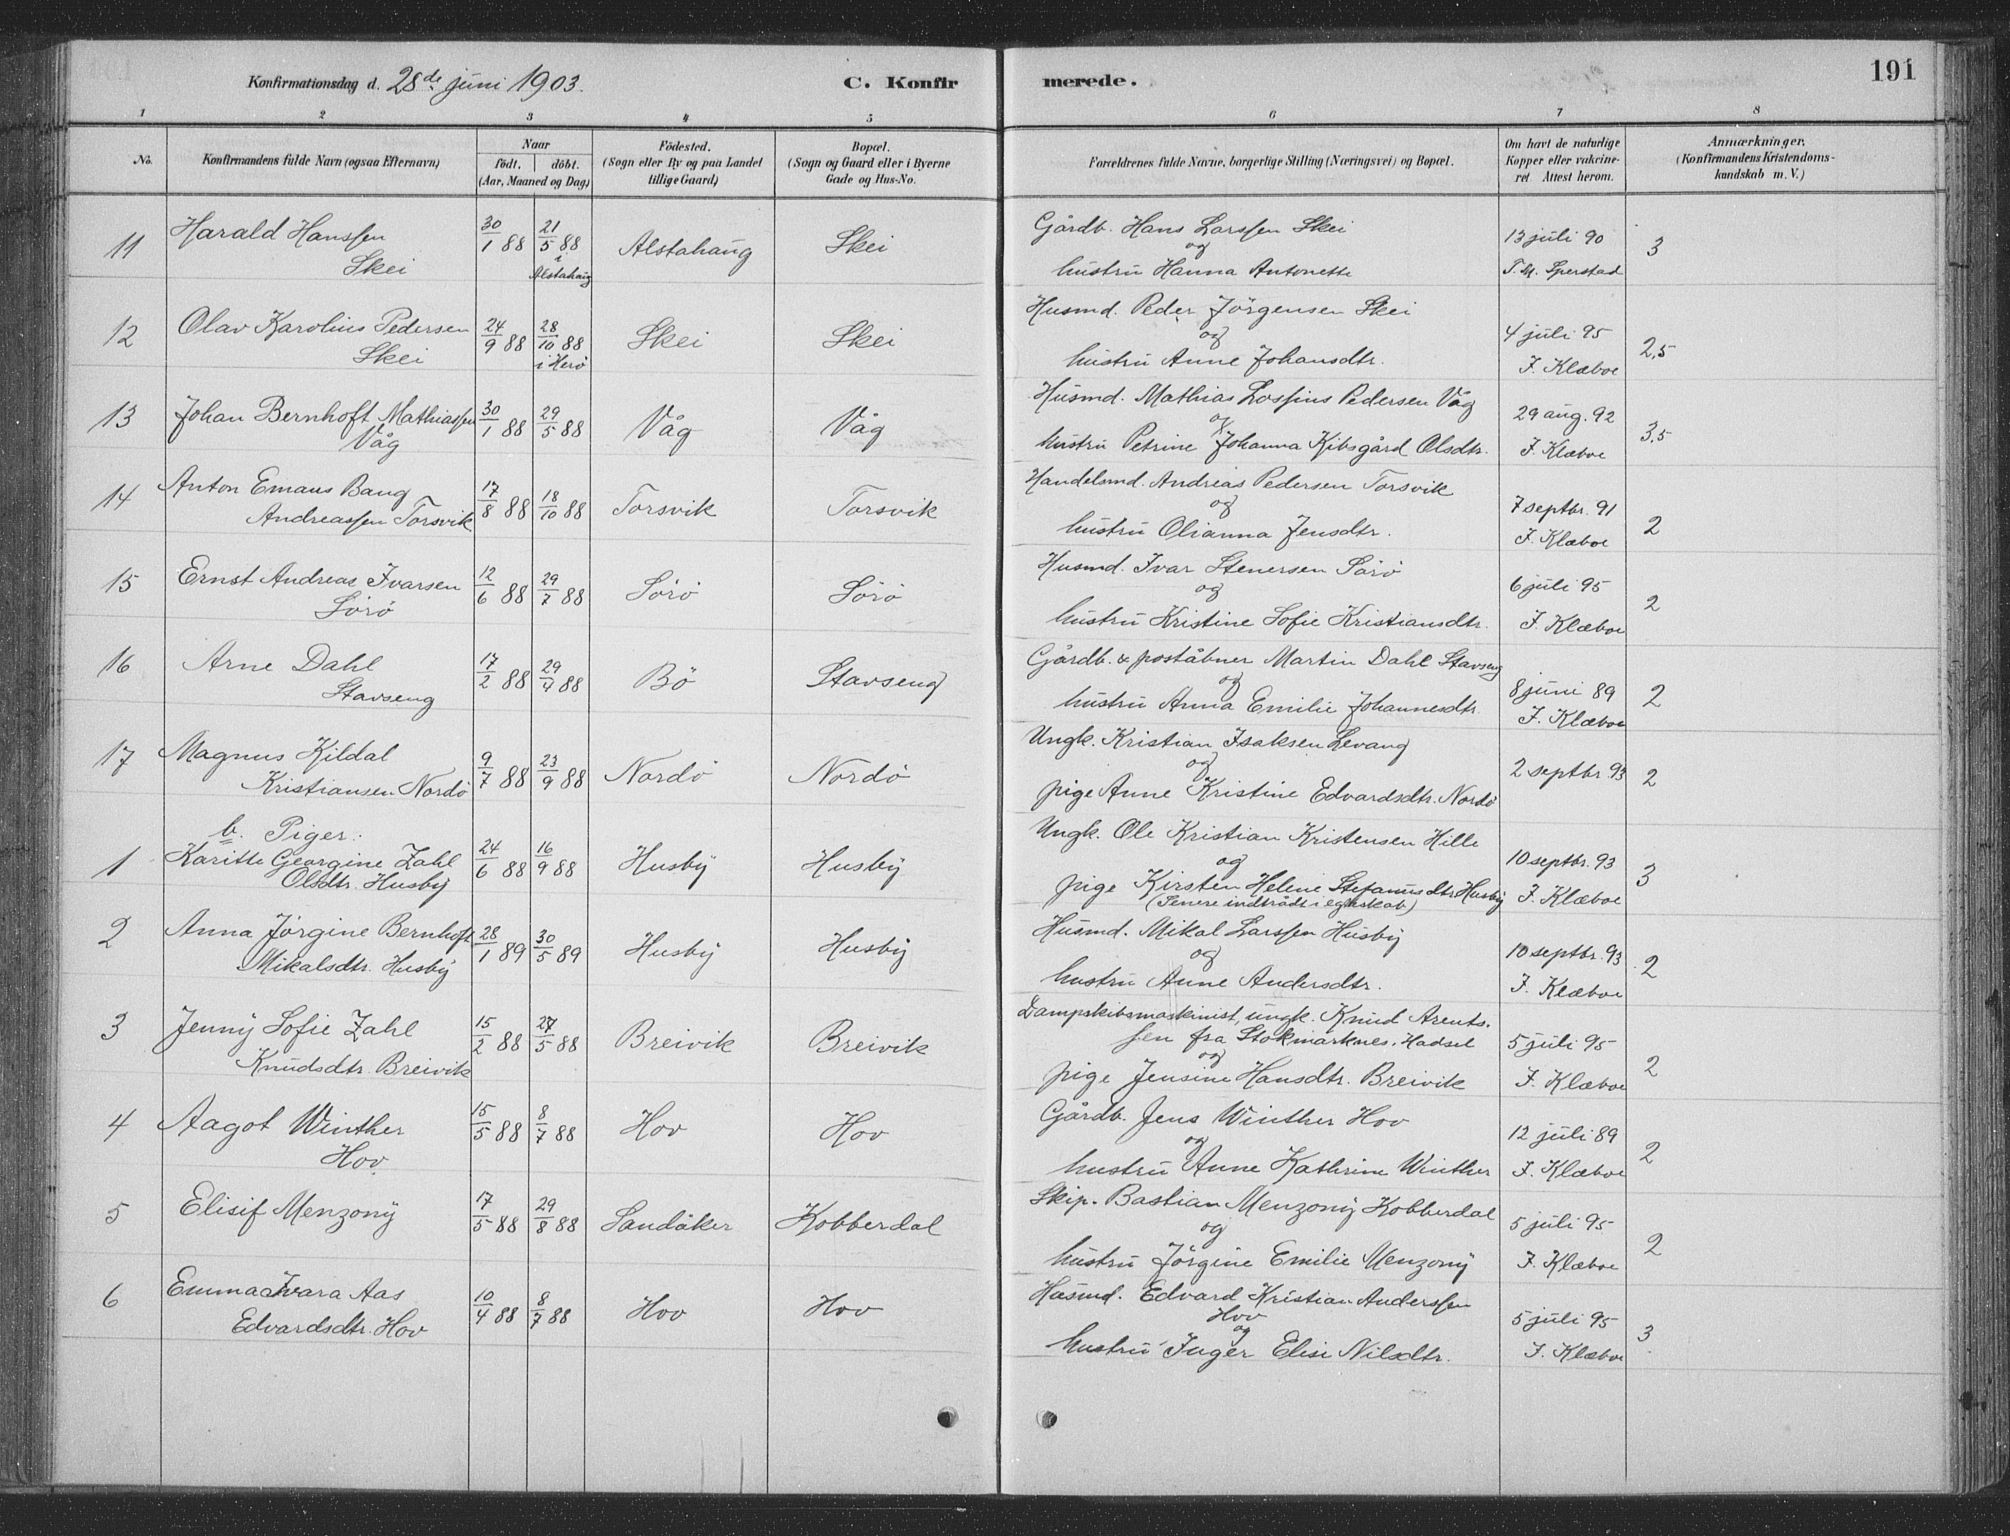 Konfirmationsdag d. 28de juni 1903. C. Konfir merede. 191
1 2 3 4 5 6 7 8
No. Konfirmandens fulde Navn (ogsaa Efternavn)
Naar
födt. döbt.
(Aar, Maaned og Dag)
Födested.
(Sogn eller By og paa Landet
tillige Gaard)
Bopæl.
(Sogn og Gaard eller i Byerne
Gade og Hus-No.
Forældrenes fulde Navne, borgerlige Stilling (Næringsvei) og Bopæl.
Om havt de naturlige
Kopper eller vakcine-
ret Attest herom.
Anmærkninger.
(Konfirmandens Kristendoms-
kundskab m. V.)
11 Harald Hanssen
Skei
30/1 88 21/5 88
i
Alstahaug
Alstahaug Skei
Gårdb. Hans Larssen Skei
og
hustru Hanna Antonette
13 juli 90
T. M. Sperstad
3
12 Olav Karolius Pedersen
Skei
24/9 88 28/10 88
i Herö
Skei Skei
Husmd. Peder Jörgensen Skei
og
hustru Anne Johansdtr.
4 juli 95
J. Klæboe
2,5
13 Johan Bernhoft Mathiassen
Våg
30/1 88 29/5 88
Våg Våg
Husmd. Mathias Lossius Pedersen Våg
og
hustru Petrine Johanna Kibsgård Olsdtr.
29 aug. 92
J. Klæboe
3,5
14 Anton Emaus Bang
Andreassen Torsvik
17/8 88 18/10 88
Torsvik Torsvik
Handelsmd. Andreas Pedersen Torsvik
og
hustru Olianna Jensdtr.
7 septbr. 91
J. Klæboe
2
15 Ernst Andreas Ivarsen
Sörö
12/6 88 29/7 88
Sörö Sörö
Husmd. Ivar Stenersen Sörö
og
hustru Kristine Sofie Kristiansdtr.
6 juli 95
J. Klæboe
2
16 Arne Dahl
Stavseng
17/2 88 29/4 88
Bö Stavseng
Gårdb. & poståbner Martin Dahl Stavseng
og
hustru Anna Emilie Johannesdtr.
8 juni 89
J. Klæboe
2
17 Magnus Kildal
Kristiansen Nordö
9/7 88 23/9 88
Nordö Nordö
Ungk. Kristian Isaksen Levang
og
pige Anne Kristine Edvardsdtr. Nordö
2 septbr. 93
2
b. Piger.
1 Karitte Georgine Zahl
Olsdtr. Husby
24/6 88 16/9 88
Husby Husby
Ungk. Ole Kristian Kristensen Hille
og
pige Kirsten Helene Stefanusdtr Husby
(Senere indtrådt i egteskab)
10 septbr. 93
J. Klæboe
3
2 Anna Jörgine Bernhoft
Mikalsdtr. Husby
28/1 89 30/5 89
Husby Husby
Husmd. Mikal Larssen Husby
og
hustru Anne Andersdtr.
10 septbr. 93
J. Klæboe
2
3 Jenny Sofie Zahl
Knudsdtr. Breivik
15/2 88 27/5 88
Breivik Breivik
Dampskibsmaskinist, ungk. Knud Arents-
sen fra Stokmarknes, Hadsel
og
pige Jensine Hansdtr. Breivik
5 juli 95
J. Klæboe
2
4 Aagot Winther
Hov
15/5 88 8/7 88
Hov Hov
Gårdb. Jens Winther Hov
og
hustru Anne Kathrine Winther
12 juli 89
J. Klæboe
2
5 Elisif Menzony
17/5 88 29/8 88
Sandåker Kobberdal
Skip. Bastian Menzony Kobberdal
og
hustru Jörgine Emilie Menzony
5 juli 95
J. Klæboe
2
6 Emma Ivara Aas
Edvardsdtr. Hov
10/4 88 8/7 88
Hov Hov
Husmd. Edvard Kristian Anderssen
Hov
og
hustru Inger Elise Nilsdtr.
5 juli 95
J. Klæboe
3